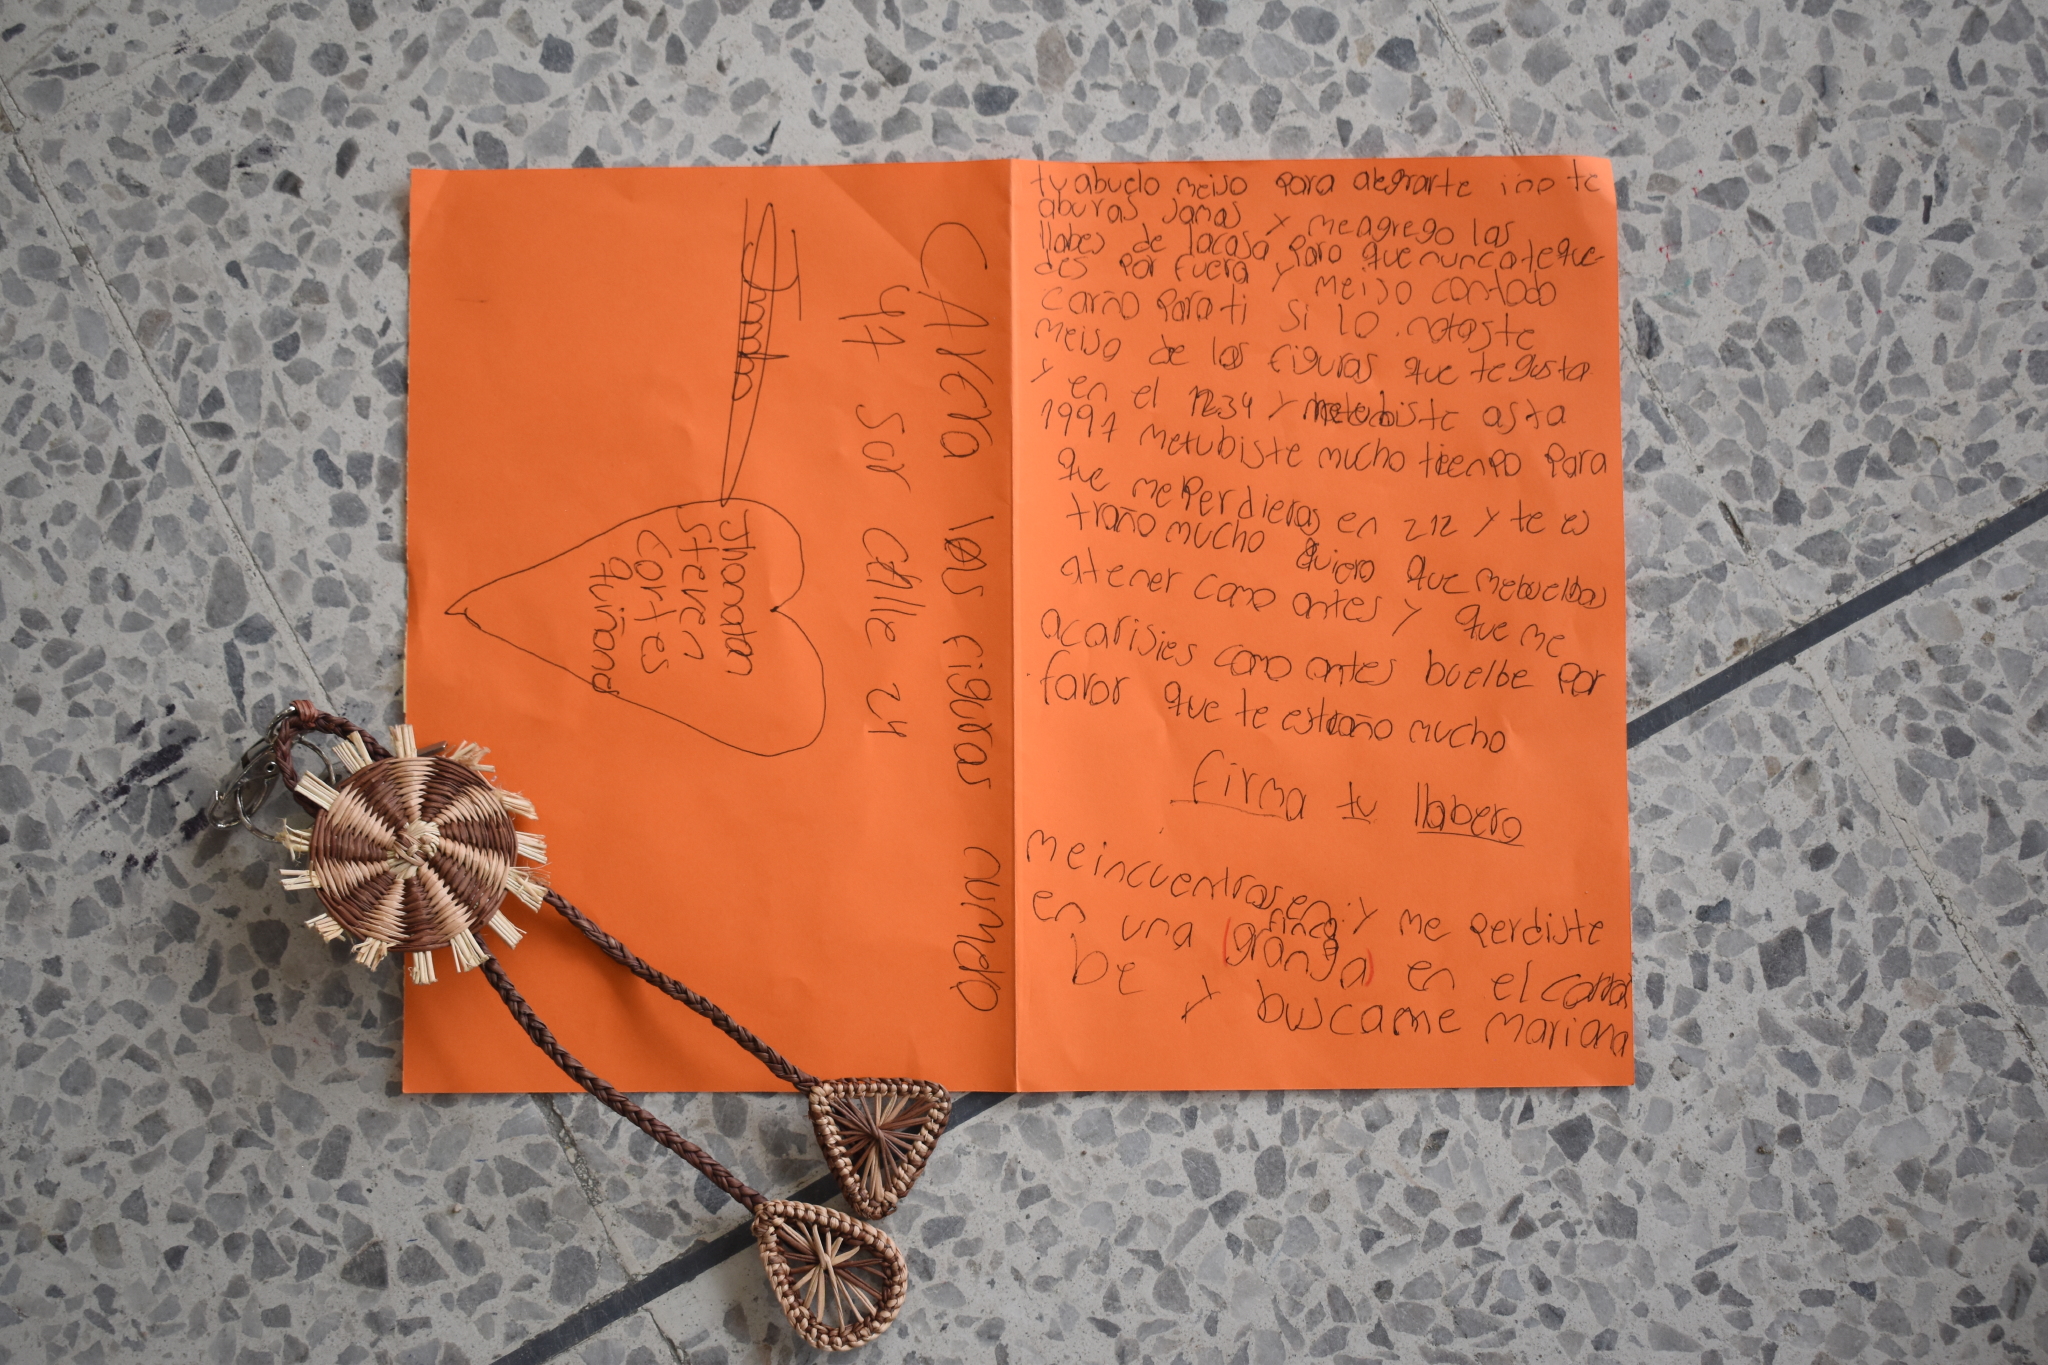 tu abuelo meiso para alegrarte ino te
aburas jamas y meagrego las
llabes de lacasa para que nuncateque-
des por fuera y meiso contodo
cariño para ti si lo notaste
meiso de las figuras que tegusta
y en el 1234 y metubiste asta
1997 metubiste mucho tienpo para
que meperdieras en 212 y te es
traño mucho quiero que mebuelbas
atener como antes y que me
acarisies como antes buelbe por
favor que te estraño mucho
firma tu llabero
meincuentras en y me perdiste
finca
en una (granja) en el
be y buscame mariana
CArera las figuras numero
47 sur calle 24
Jhonatan
Steven
Cortes
quiñones